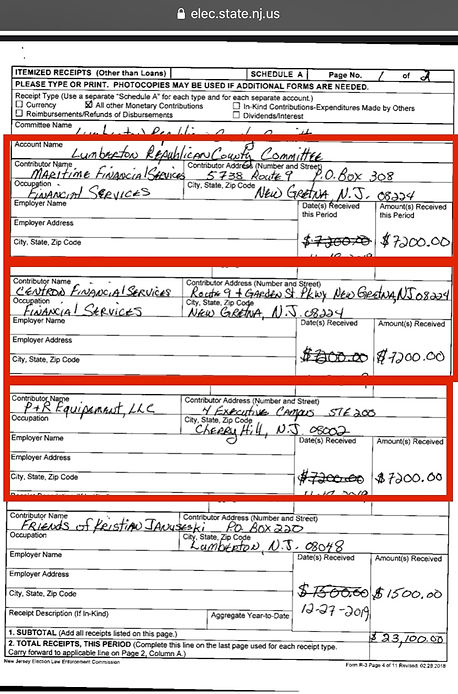 elec.state.nj.us
ITEMIZED RECEIPTS (Other than Loans)
SCHEDULE A
Page No. 1 of 2
PLEASE TYPE OR PRINT. PHOTOCOPIES MAY BE USED IF ADDITIONAL FORMS ARE NEEDED.
Receipt Type (Use a separate "Schedule A" for each type and for each separate account.)
Currency All other Monetary Contributions In-Kind Contributions-Expenditures Made by Others
Reimbursements/Refunds of Disbursements Dividends/Interest
Committee Name
Account Name
Lumberton Republican County Committee
Contributor Name Contributor Address (Number and Street)
Maritime Financial Services 5738 Route 9 P.O. Box 308
Occupation City, State, Zip Code
Financial Services New Gretna N.J. 08224
Employer Name Date(s) Received this Period Amount(s) Received this Period
Employer Address
City, State, Zip Code $7200.00 $7200.00
Contributor Name Contributor Address (Number and Street)
Centron Financial Services Route 9 + Garden St Pkwy New Gretna, NJ 08224
Occupation City, State, Zip Code
Financial Services New Gretna, N.J. 08224
Employer Name Date(s) Received Amount(s) Received
Employer Address
City, State, Zip Code $7200.00
Contributor Name Contributor Address (Number and Street)
P+R Equipament, LLC 4 Executive Campus STE 200
Occupation City, State, Zip Code
Cherry Hill, N.J. 08002
Employer Name Date(s) Received Amount(s) Received
Employer Address
City, State, Zip Code $7200.00 $7200.00
Contributor Name Contributor Address (Number and Street)
Friends of Kristian Januseski PO. Box 220
Occupation City, State, Zip Code
Lumberton, N.J. 08048
Employer Name Date(s) Received Amount(s) Received
Employer Address
City, State, Zip Code $1500.00 $1500.00
12-27-2019
Receipt Description (If In-Kind) Aggregate Year-to-Date
1. SUBTOTAL (Add all receipts listed on this page.) $23,100.00
2. TOTAL RECEIPTS, THIS PERIOD (Complete this line on the last page used for each receipt type.
Carry forward to applicable line on Page 2, Column A.)
New Jersey Election Law Enforcement Commission
Form R-3 Page 4 of 11 Revised: 02.28.2018